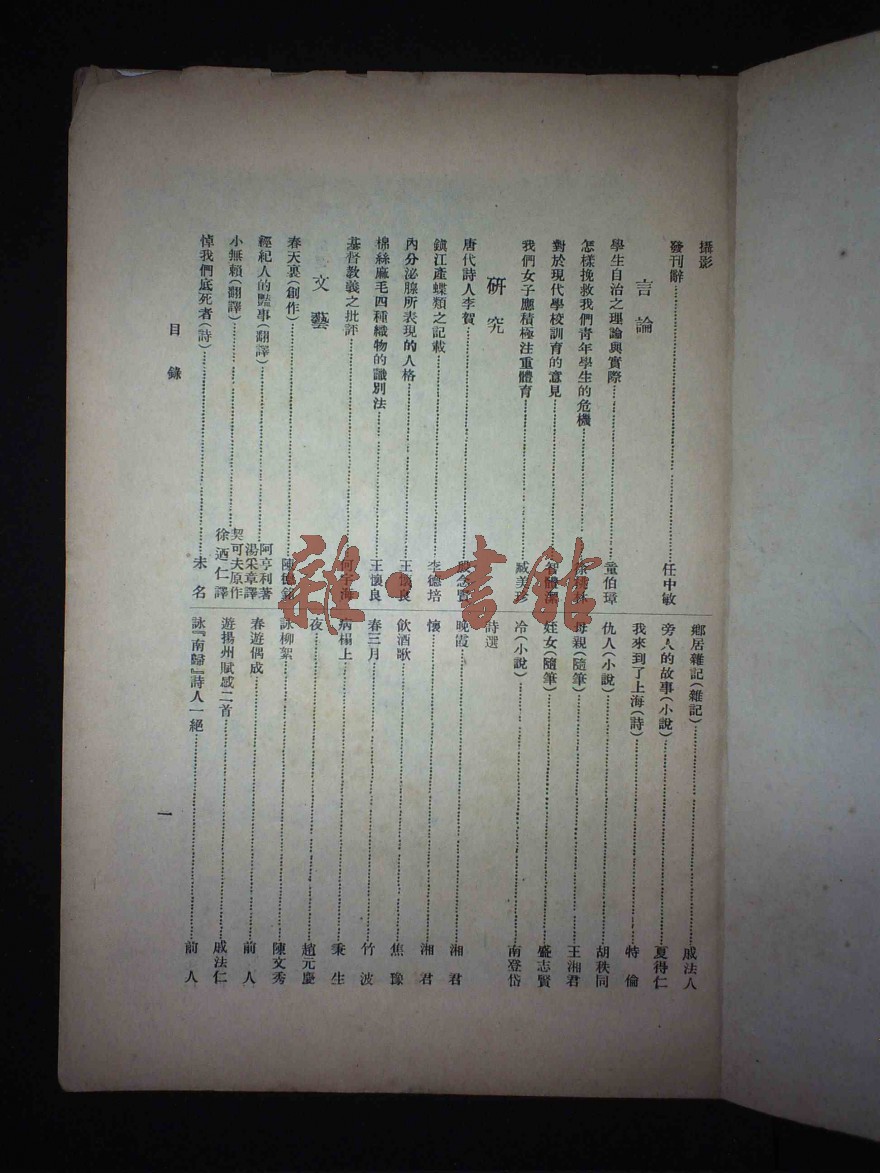 攝影
發刊辭 任中敏
言論
學生自治之理論與實際 童伯璋
怎樣挽救我們青年學生的危機
對於現代學校訓育的意見
我們女子應積極注重體育 臧美珍
研究
唐代詩人李賀 殷念賢
鎮江產蝶類之記載 李德培
內分泌腺所表現的人格 王懷良
棉絲麻毛四種織物的識別法 王懷良
基督教義之批評 何宇海
文藝
春天裏(創作) 陳德銘
經紀人的豔事(翻譯) 阿亨利著 湯采章譯
小無賴(翻譯) 契可夫原作 徐迺仁譯
悼我們底死者(詩) 未名
鄉居雜記(雜記) 戚法人
旁人的故事(小說) 夏得仁
我來到了上海(詩) 特倫
仇人(小說) 胡秩同
母親(隨筆) 王湘君
妊女(隨筆) 盛志賢
冷(小說) 南登岱
詩選
晚霞 湘君
懷 湘君
飲酒歌 焦豫
春三月 竹波
病榻上 秉生
夜 趙元慶
詠柳絮 陳文秀
春遊偶成 前人
遊揚州賦感二首 戚法仁
詠『南歸』詩人一絕 前人
目錄
一
雜·書館